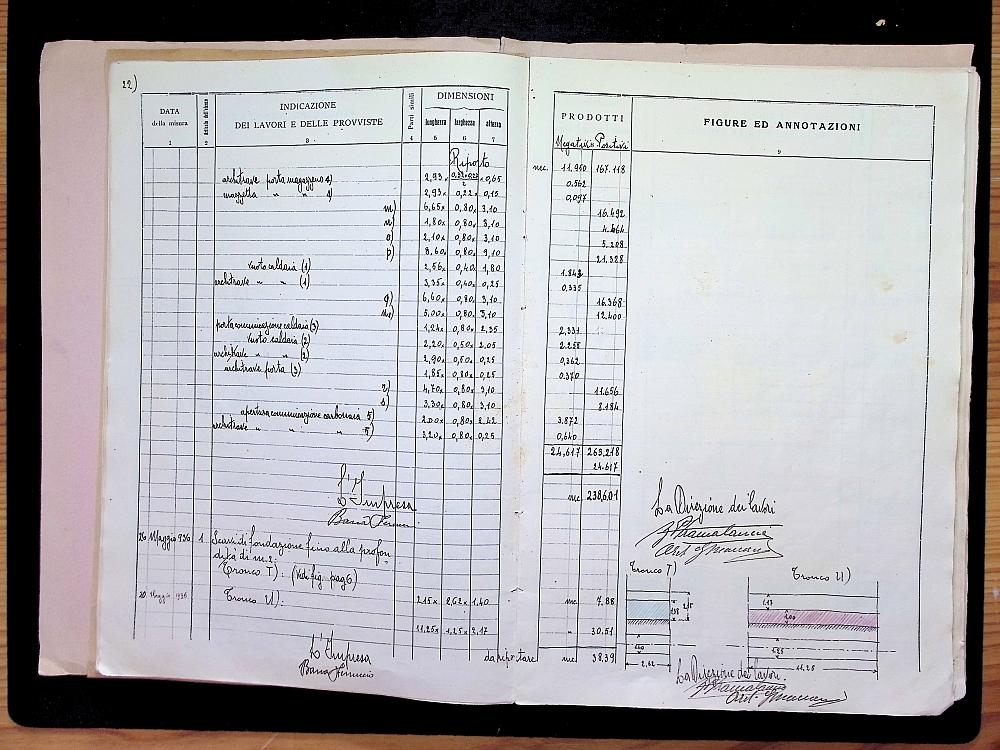 22)
DATA della misura
Articolo dell'elenco
INDICAZIONE
DEI LAVORI E DELLE PROVVISTE
Parti simili
DIMENSIONI
lunghezza larghezza altezza
PRODOTTI
Negativi Positivi
FIGURE ED ANNOTAZIONI
1 2 3 4 5 6 7 9
Riporto mc. 11.950 167.118
architrave porta magazzeno 2,93 × × 0,65 0.562
mazzetta " " 2,93 × 0,22 × 0,15 0,097
m) 6,65 × 0,80 × 3,10 16.492
n) 1,80 × 0,80 × 3,10 4.464
o) 2,10 × 0,80 × 3,10 5.208
p) 8.60 × 0,80 × 3,10 21.328
vuoto caldaia (1) 2,56 × 0,40 × 1,80 1.843
architrave " " (1) 3,35 × 0,40 × 0,25 0,335
q) 6,60 × 0,80 × 3,10 16.368
5,00 × 0,80 × 3,10 12.400
porta comunicazione caldaia (3) 1,24 × 0,80 × 2,35 2,331
vuoto caldaia (2) 2,20 × 0,50 × 2,05 2.255
architrave " " (2) 2,90 × 0,50 × 0,25 0,362
architrave porta (3) 1,85 × 0,80 × 0,25 0.370
r) 4,70 × 0,80 × 3,10 11.656
s) 3,30 × 0,80 × 3,10 8.184
apertura comunicazione carbonaia 5) 2.00 × 0,80 × 2.42 3.872
architrave " " " 5) 3,20 × 0,80 × 0,25 0,640
24,617 263,218
24.617
mc. 238,601
L'Impresa
La Direzione dei lavori
26 Maggio 936 1 Scavi di fondazione fino alla profon
dità di m.2:
Tronco T): (Vedi fig. pag 6)
2.15 × 2,62 × 1,40 mc. 7.88
20 Maggio 1936 Tronco U):
11,25 × 1,25 × 2.17 " 30.51
da riportare mc 38.39
L'Impresa
Tronco T)
2,62
Tronco U)
11,25
La Direzione dei lavori.